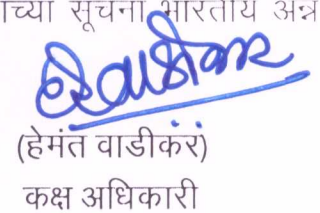 च्या सूचना भारतीय अन्न
(हेमंत वाडीकर)
कक्ष अधिकारी